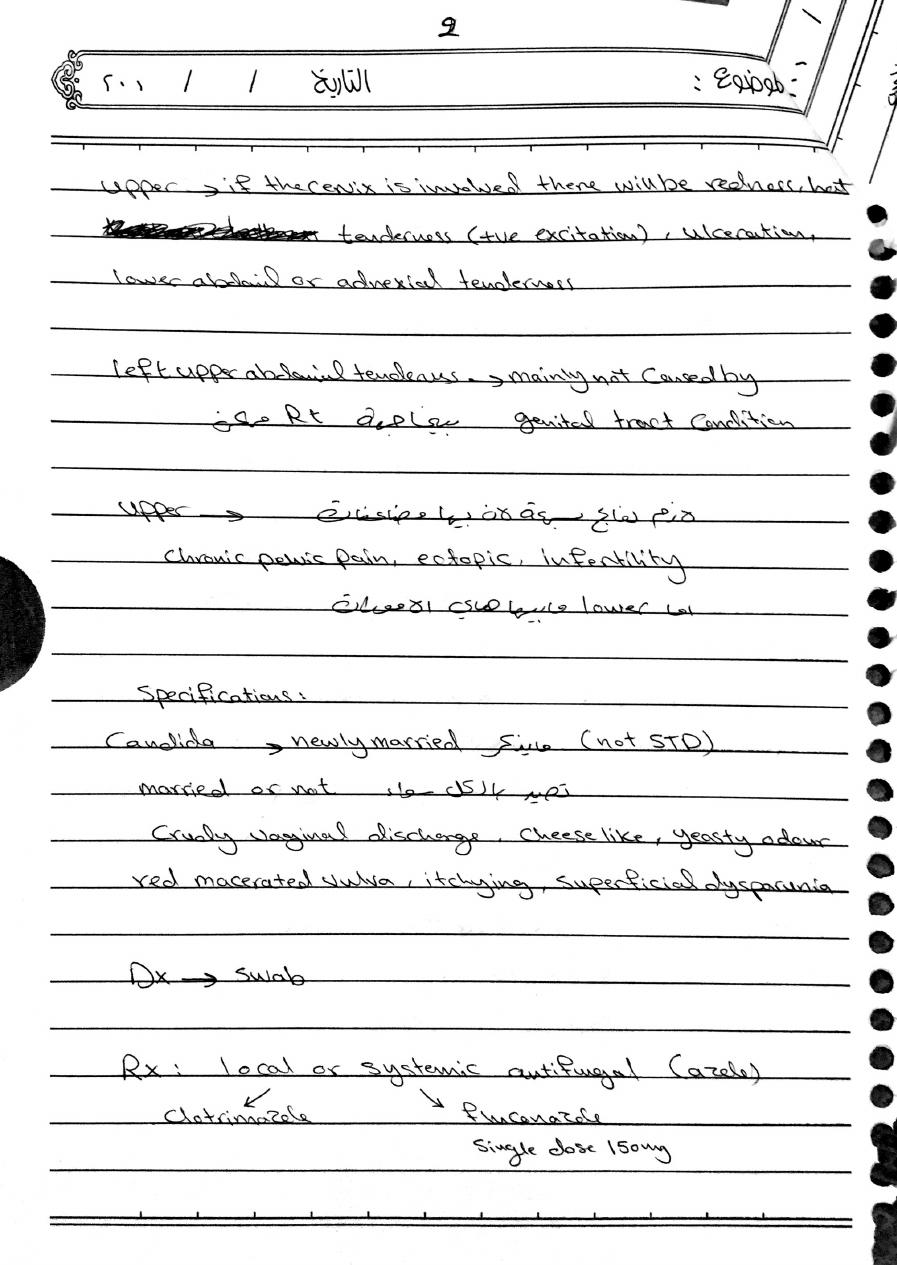 9
موضوع : التاريخ / / ٢٠١
upper → if the cervix is involved there will be redness, heat
tenderness (+ve excitation), ulceration,
lower abdoail or adnexial tenderness
left upper abdomial tenderness → mainly not caused by
genital tract condition Rt ممكن
upper → لازم تعالج بسرعة لان بيها مضاعفات
chronic pelvic pain, ectopic, infertility
اما lower مابيها هذي الاختلاطات
Specifications:
Candida → newly married مايذكر (not STD)
married or not تصير بالكل سواء
Crudy vaginal discharge, cheese like, yeasty odour
red macerated vulva, itchying, superficial dysparunia
Dx → swab
Rx: local or systemic antifungal (azole)
Clotrimazole fluconazole
Single dose 150mg